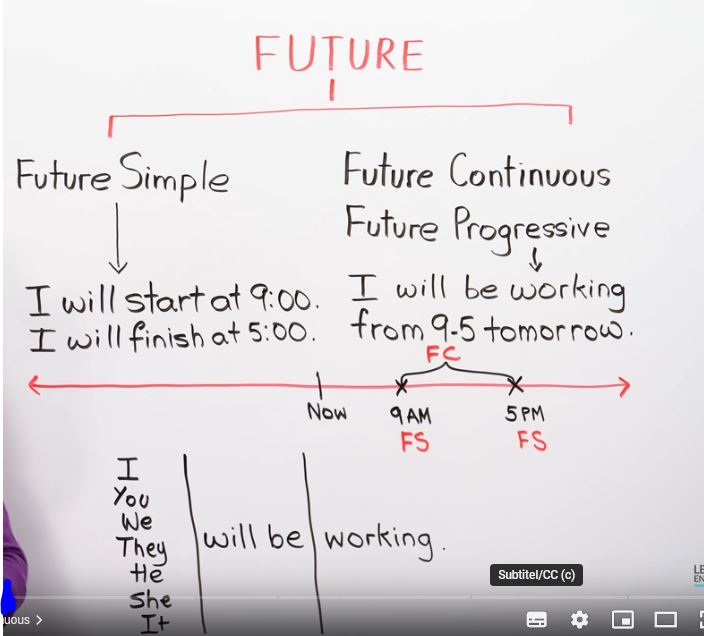 FUTURE
Future Simple
I will start at 9:00.
I will finish at 5:00.
Future Continuous
Future Progressive
I will be working
from 9-5 tomorrow.
FC
Now
9 AM
5 PM
FS
FS
I
You
We
They
He
She
It
will be
working.
Subtitel/CC (c)
LE
EN
uous